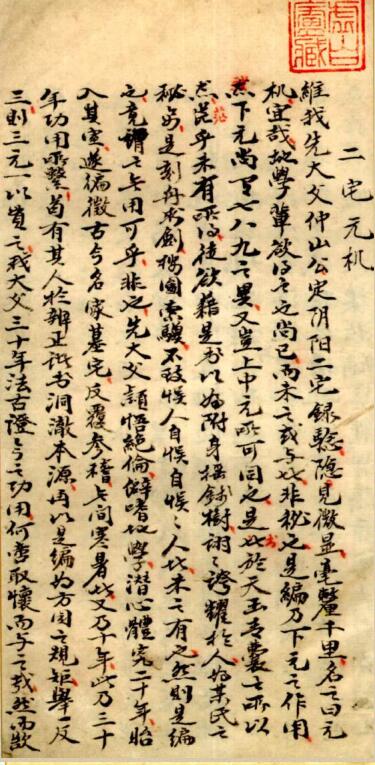 二宅元机
維我先大父仲山公定阴阳二宅録驗隐見微显毫釐千里名之曰元
机宜哉地學輩欲得之也尚已而未之或与也非秘之是編乃下元之作用
下元尚有七八九之異又豈上中元所可同之是也於天玉青囊之所以
然茫乎未有所得徒欲藉是書以為附身樹詡之誇耀於人為某氏之
秘旁是刻舟求劍按圖索驥不致悮人自悮自悮之人也未之有也然則是編
之竟謂之無用可乎非也先大父頴悟絕倫僻嗜地學潜心體究二十年
入其室遂徧徵古今名家墓宅反覆参稽之間寒暑也又乃十年此乃三十
年功用所繫苟有其人於辨正諸书洞澈本源再以是編為方圆之規矩舉一反
三則三元一以貫之我大父三十年法古證今之功用何啻取懷而与之哉然而欲